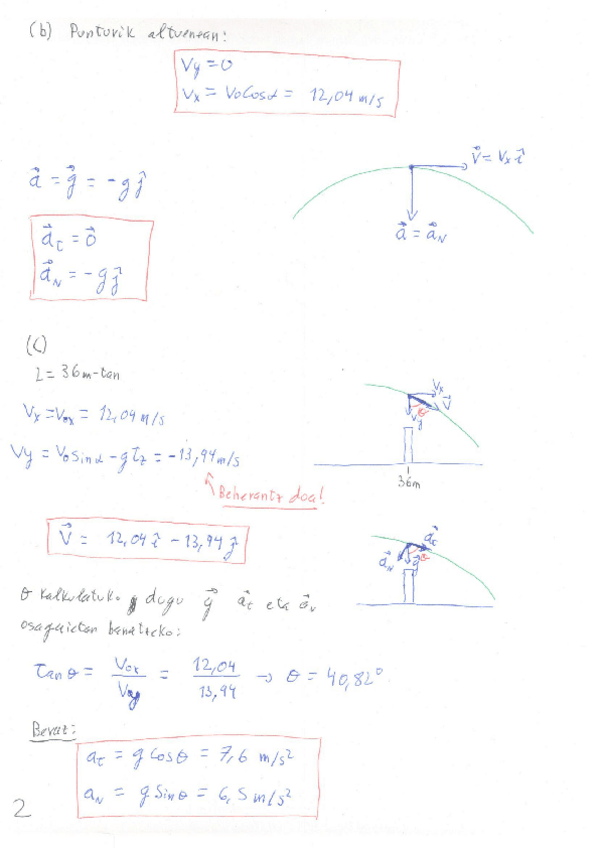 (b) Punturik altuenean:
Vy = 0
Vx = V₀ cosα = 12,04 m/s
V⃗ = Vx î
a⃗ = g⃗ = -g ĵ
a⃗ = a⃗N
a⃗t = 0⃗
a⃗N = -g ĵ
(c)
L = 36m-tan
Vx = V₀x = 12,04 m/s
Vy = V₀ sinα - g t₂ = -13,94 m/s
Beherantz doa!
Vx
θ
V⃗
Vy
36m
V⃗ = 12,04 î - 13,94 ĵ
a⃗t
a⃗N
g⃗
θ
θ kalkulatuko dugu g⃗ a⃗t eta a⃗N
osagaietan banatzeko:
tan θ = V₀x / Vy = 12,04 / 13,94 → θ = 40,82°
Beraz:
at = g cosθ = 7,6 m/s²
aN = g sinθ = 6,5 m/s²
2